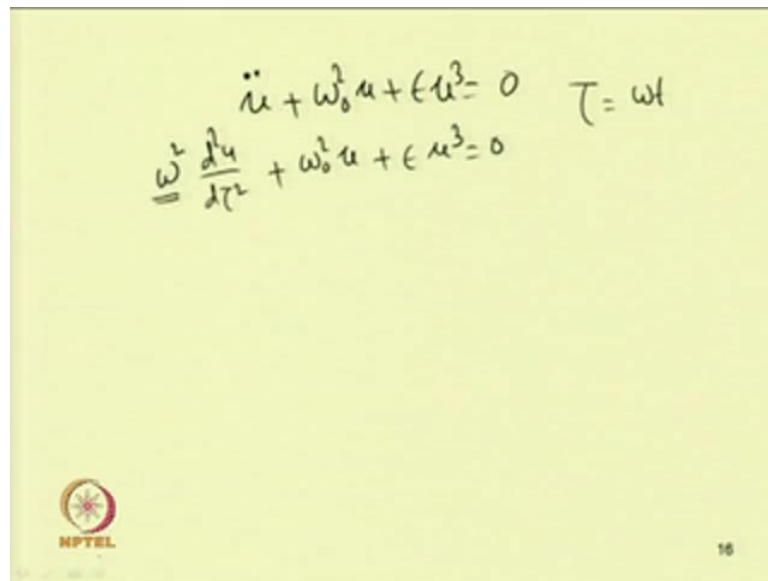 ü + ω₀² u + ϵ u³ = 0    τ = ωt
ω² d²u/dτ² + ω₀² u + ϵ u³ = 0
NPTEL
16